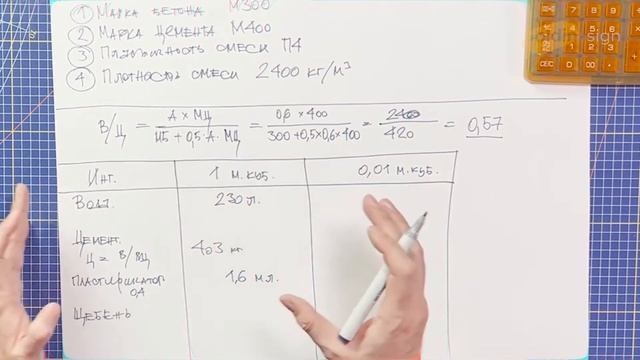 ① Марка бетона М300
② Марка цемента М400
③ Пластичность смеси П4
④ Плотность смеси 2400 кг/м³
В/Ц = А × МЦ / МБ + 0,5·А·МЦ = 0,6 × 400 / 300 + 0,5×0,6×400 = 240 / 420 = 0,57
Инг. 1 м.куб. 0,01 м.куб.
Вода. 230 л.
Цемент. 403 кг
Ц = В/ВЦ
Пластификатор 1,6 мл.
Щебень
sign